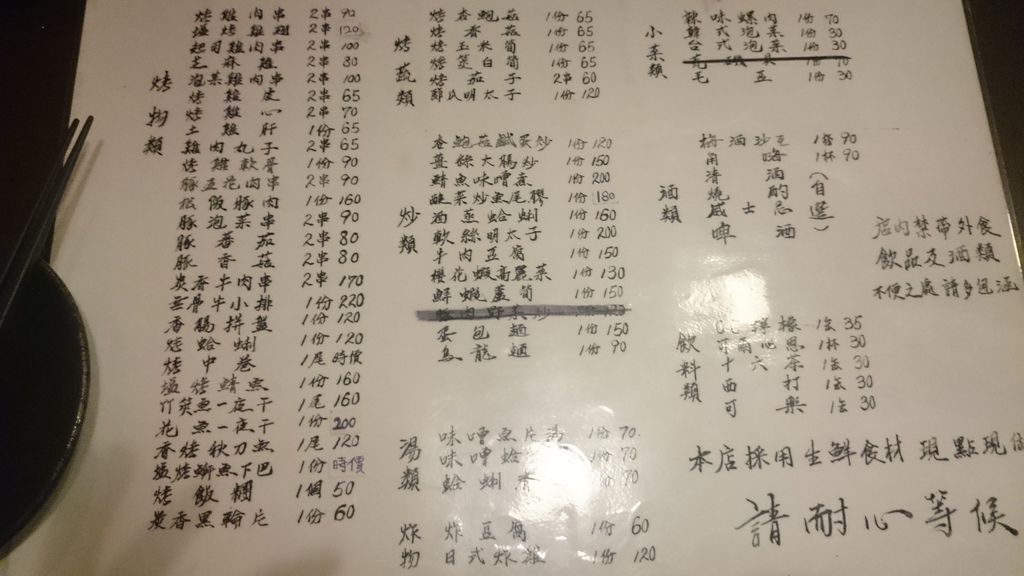 烤物類
烤雞肉串 2串 90
塩烤雞翅 2串 120
起司雞肉串 2串 100
芝麻雞 2串 80
泡菜雞肉串 2串 100
烤雞皮 2串 65
烤雞心 2串 70
土雞肝 1份 65
雞肉丸子 2串 65
烤雞軟骨 1份 90
豚五花肉串 2串 90
松阪豚肉 1份 160
豚泡菜串 2串 90
豚番茄 2串 80
豚香菇 2串 80
炭香牛肉串 2串 170
無骨牛小排 1份 220
香腸拼盤 1份 120
烤蛤蜊 1份 120
烤中卷 1尾 時價
塩烤鯖魚 1份 160
竹筴魚一夜干 1尾 160
花魚一夜干 1份 200
香烤秋刀魚 1尾 120
塩烤鮞魚下巴 1份 時價
烤飯糰 1個 50
炭香黑輪片 1份 60
烤蔬類
烤杏鮑菇 1份 65
烤香菇 1份 65
烤玉米筍 1份 65
烤茭白筍 1份 65
烤茄子 2串 60
薛氏明太子 1份 120
炒類
杏鮑菇鹹蛋炒 1份 120
薑絲大腸炒 1份 150
鯖魚味噌煮 1份 200
韭菜炒魚尾膠 1份 180
酒蒸蛤蜊 1份 160
軟絲明太子 1份 200
牛肉豆腐 1份 150
櫻花蝦高麗菜 1份 130
鮮蝦蘆筍 1份 150
蛋包麵 1份 150
烏龍麵 1份 90
湯類
味噌魚片湯 1份 70
味噌蛤 1份 70
蛤蜊 70
炸物
炸豆腐 1份 60
日式炸雞 1份 120
小菜類
辣味螺肉 1份 70
韓式泡菜 1份 30
台式泡菜 1份 30
毛豆 1份 30
酒類
梅酒沙瓦 1杯 90
角嗨 1杯 90
清酒
燒酌
威士忌
啤酒
(自選)
飲料類
35
1杯 30
十六茶 1盒 30
西打 1盒 30
可樂 1盒 30
店內禁帶外食
飲品及酒類
不便之處請多包涵
本店採用生鮮食材 現點現
請耐心等候